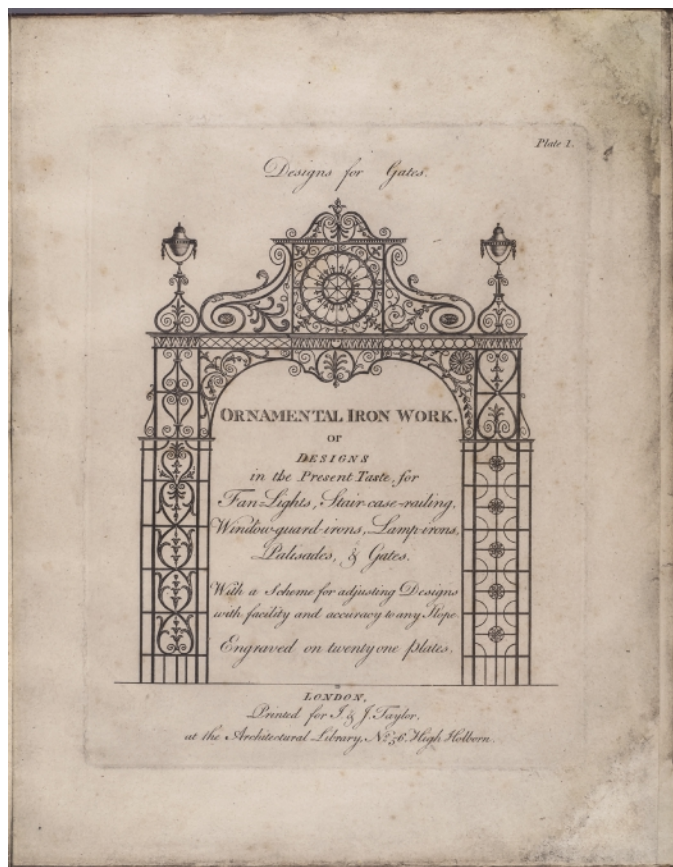 Plate 1.
Designs for Gates.
ORNAMENTAL IRON WORK.
or
DESIGNS
in the Present Taste, for
Fan-Lights, Stair-case-railing,
Window-guard-irons, Lamp-irons,
Palisades, & Gates.
With a Scheme for adjusting Designs
with facility and accuracy to any Slope.
Engraved on twenty one plates.
LONDON,
Printed for I. & J. Taylor.
at the Architectural Library, No. 56. High Holborn.